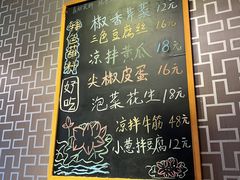 椒香芹菜 12元
三色豆腐丝 16元
凉拌黄瓜 18元
尖椒皮蛋 16元
泡菜花生 18元
凉拌牛筋 48元
小葱拌豆腐 12元
好吃